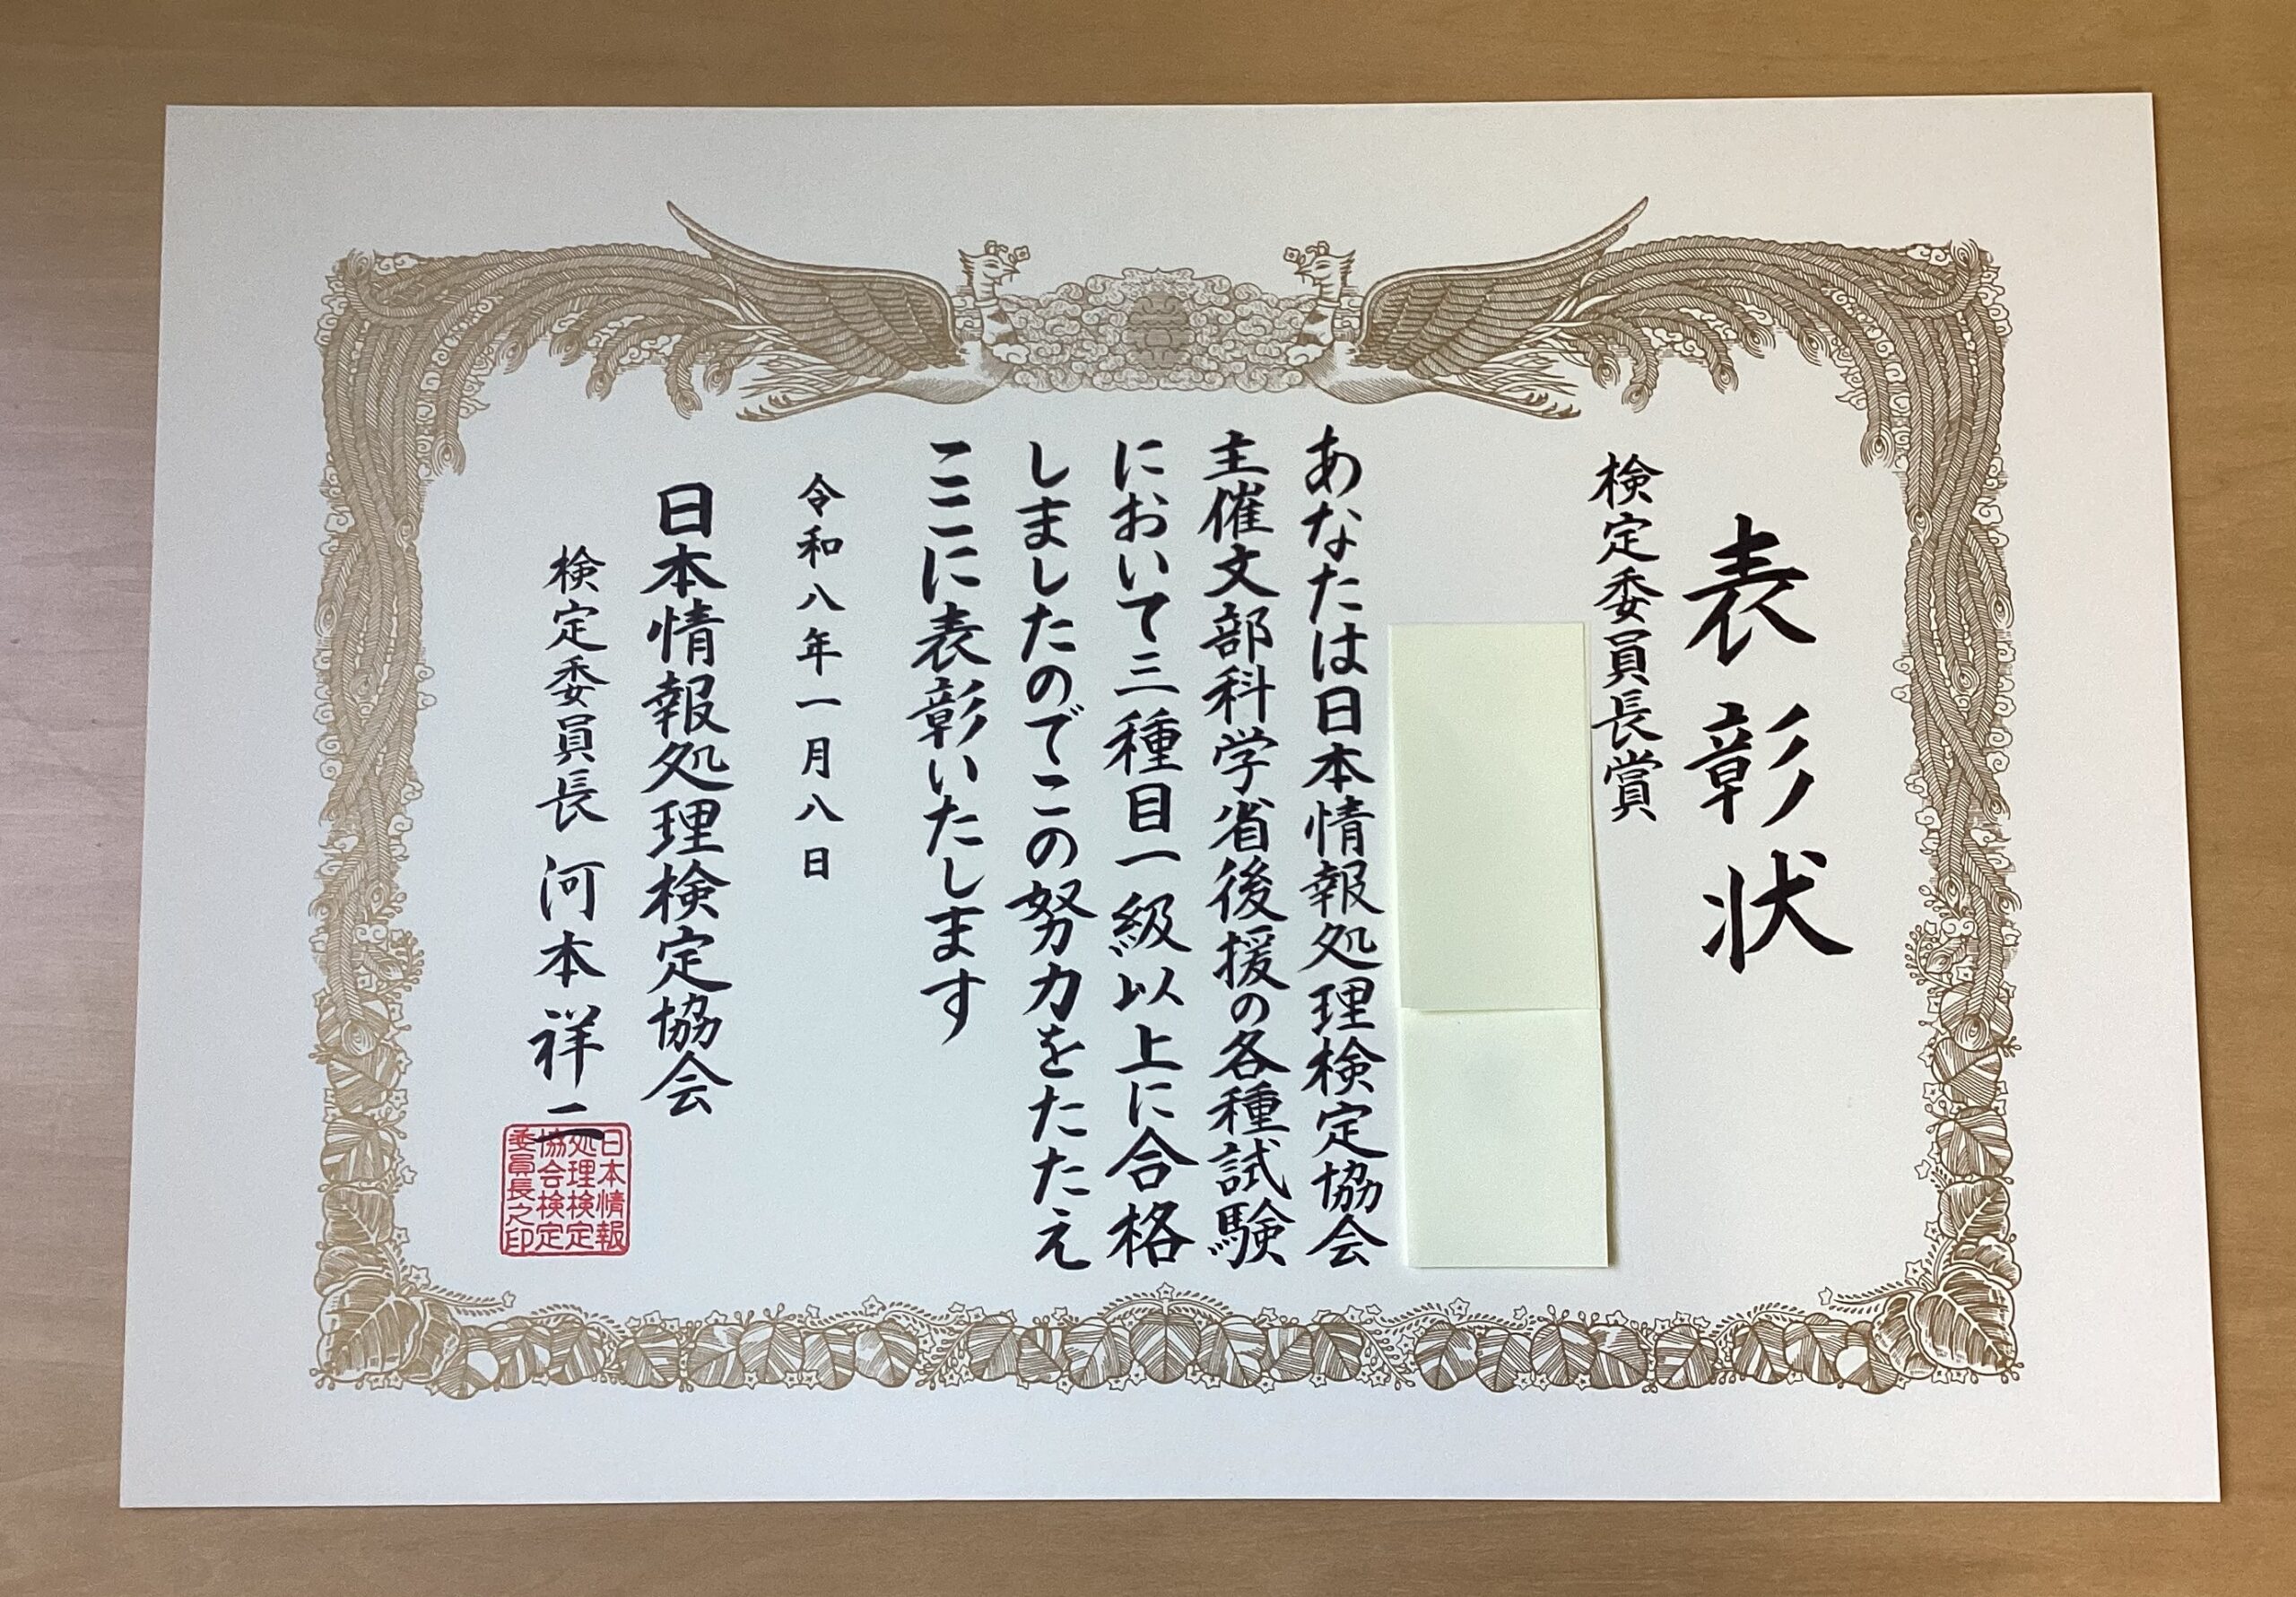 表彰状
検定委員長賞
あなたは日本情報処理検定協会
主催文部科学省後援の各種試験
において三種目一級以上に合格
しましたのでこの努力をたたえ
ここに表彰いたします
令和八年一月八日
日本情報処理検定協会
検定委員長 河本祥二
日本情報
処理検定
協会検定
委員長之印